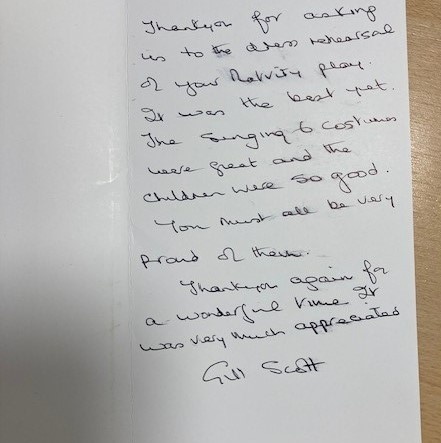 Thankyou for asking
us to the dress rehearsal
of your Nativity play.
It was the best yet.
The Singing & Costumes
were great and the
children were so good.
You must all be very
proud of them.
Thankyou again for
a wonderful time. It
was very much appreciated
Gill Scott